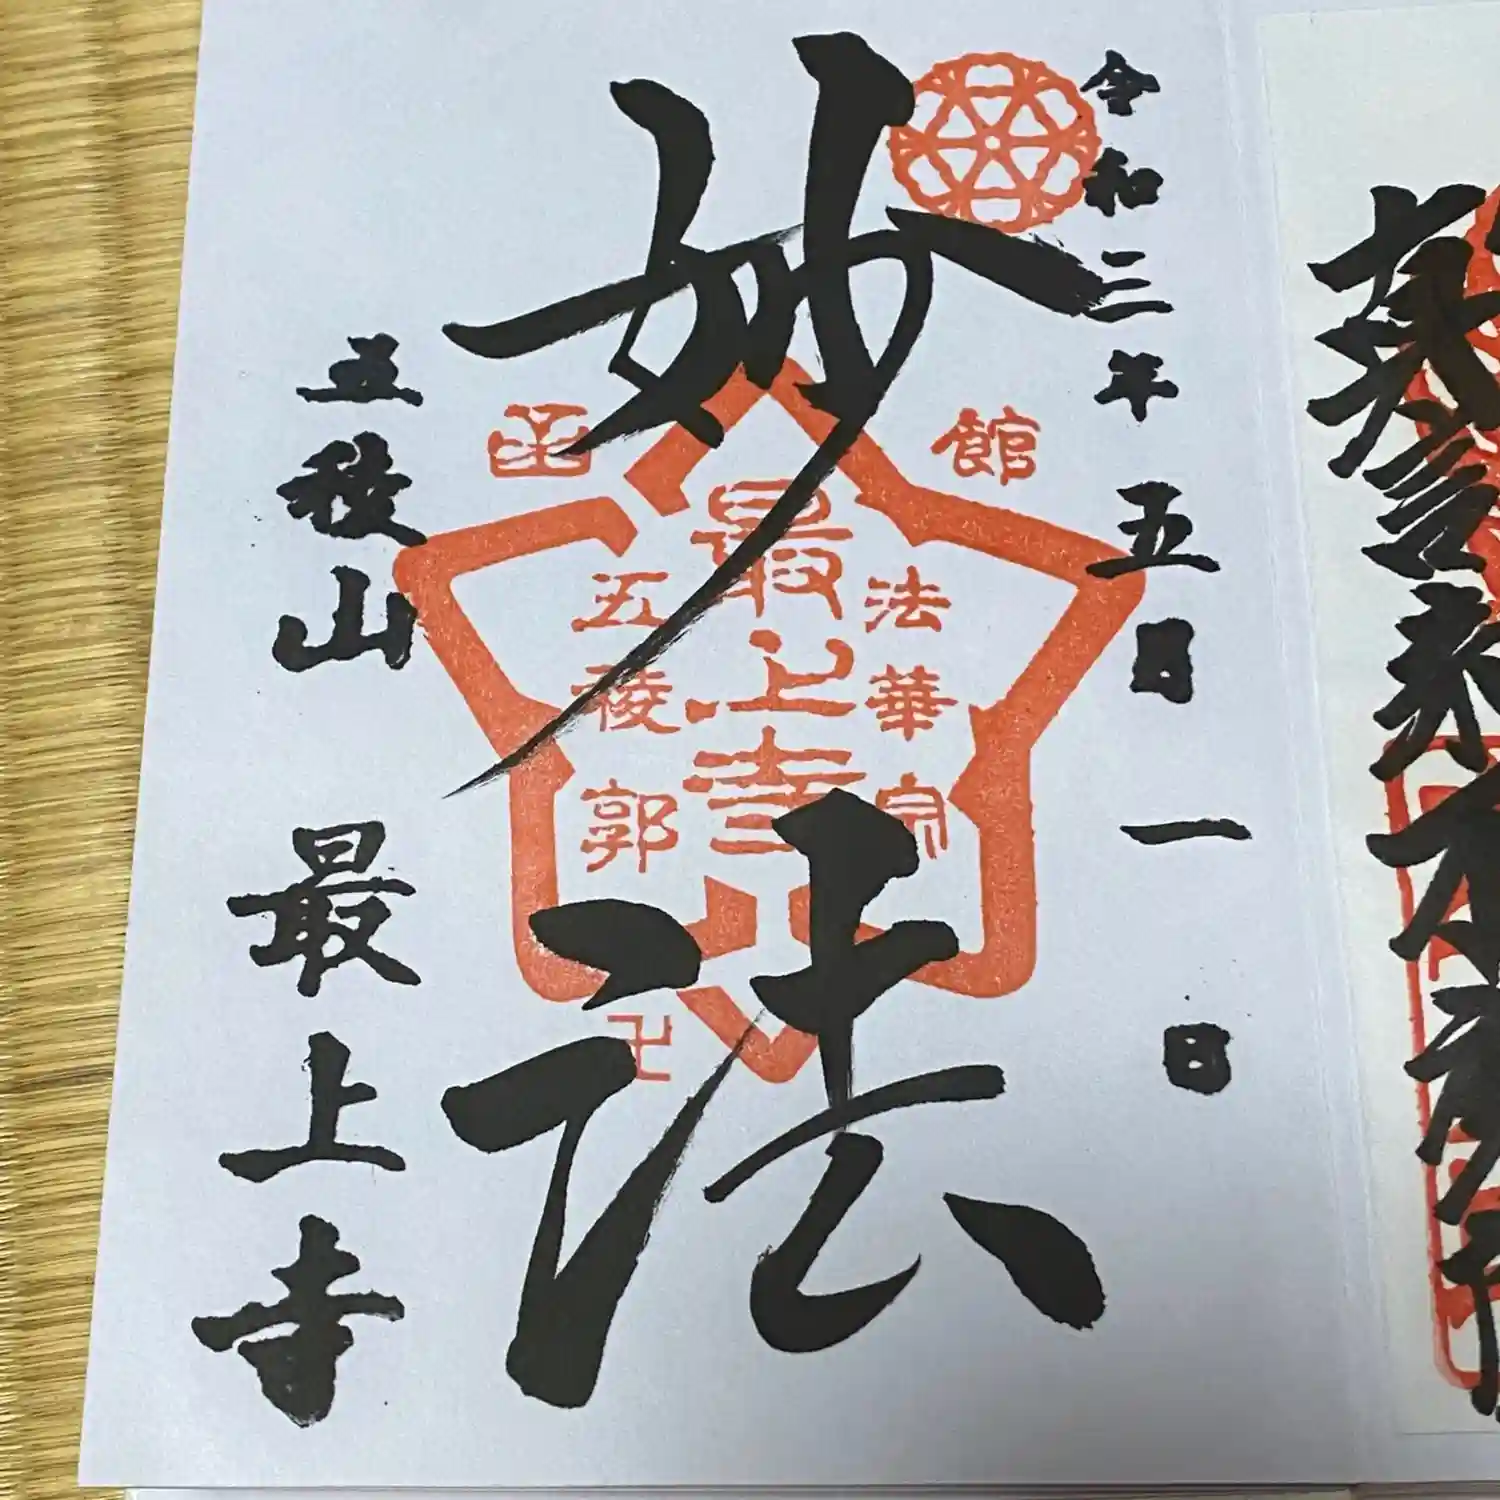 令和三年五月一日
妙法
五稜山 最上寺
函館
法華宗
最上寺
五稜郭
卍